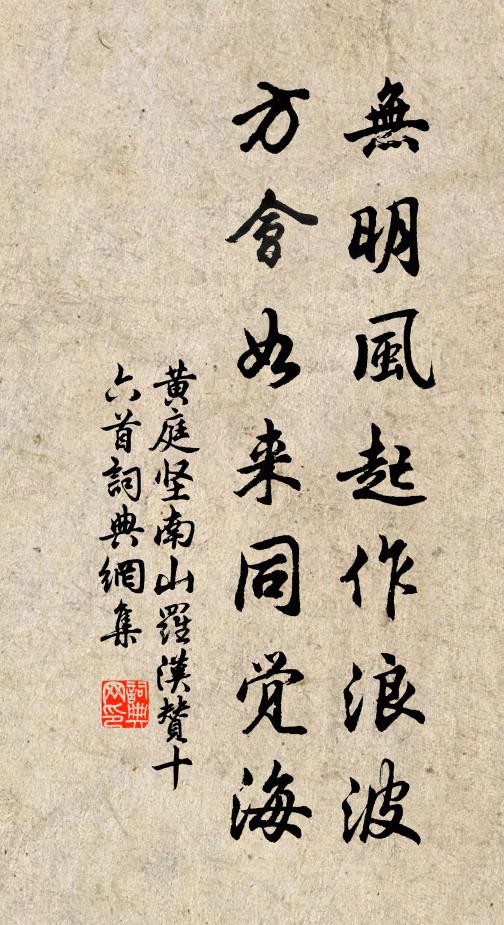 無明風起作浪波
方會如来同覚海
黄庭坚南山羅漢賛十
六首詞典網集
詞典
网印